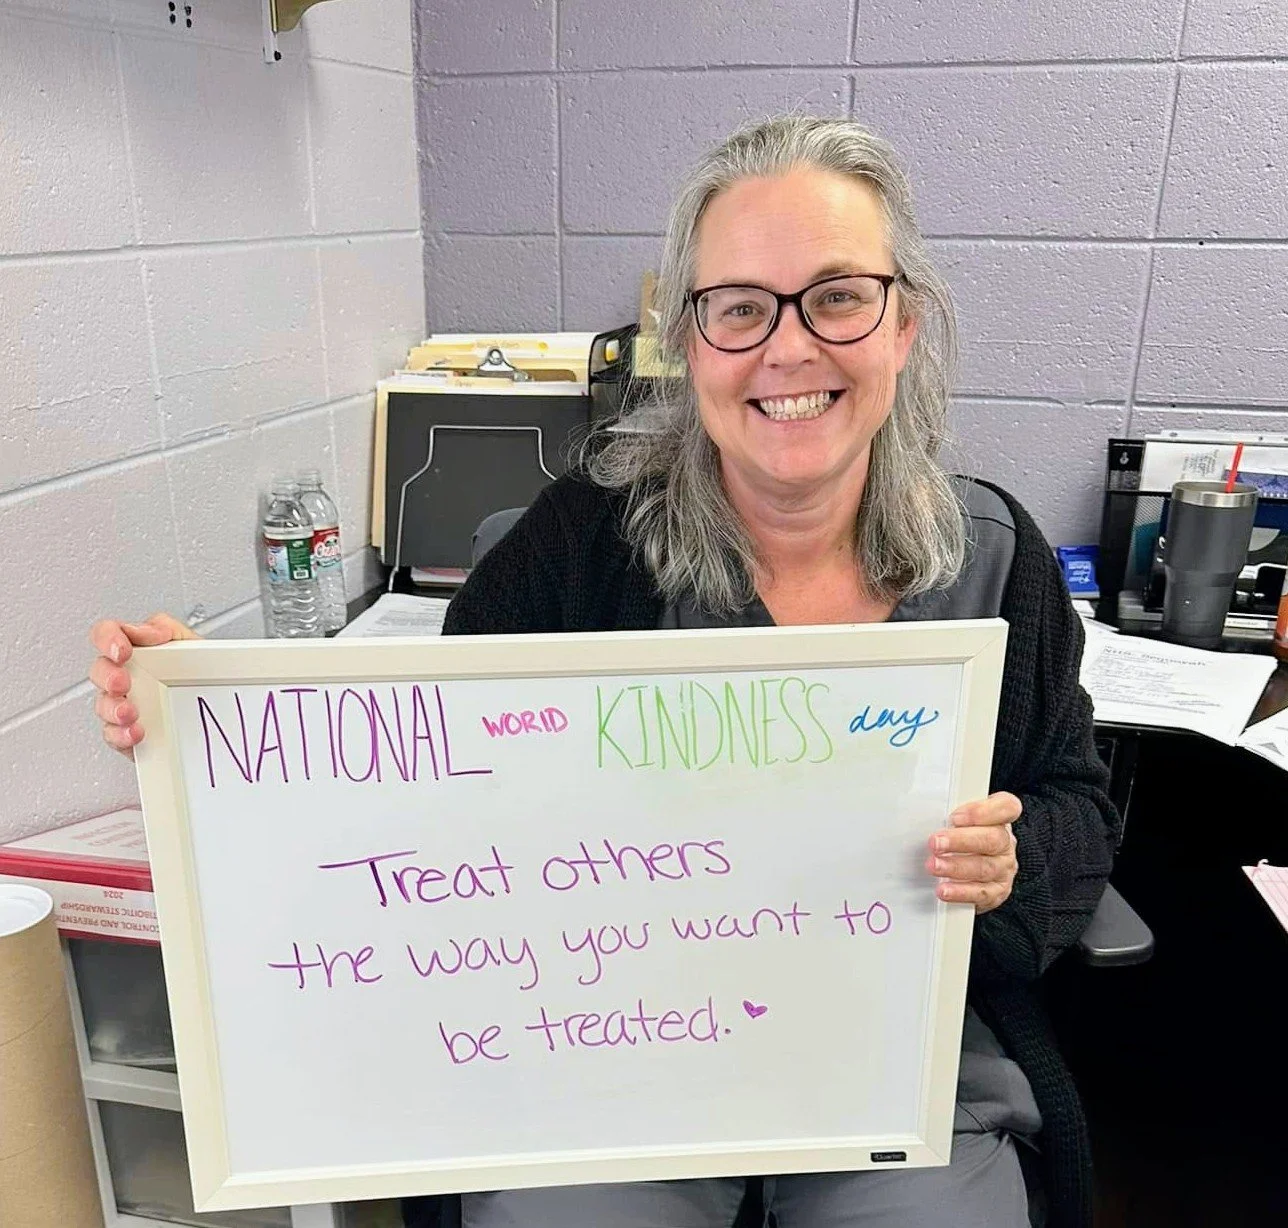 NATIONAL WORLD KINDNESS day
Treat others
the way you want to
be treated.
Quartet
CONTROL AND PREVENTI
TIBOITIC STEWARDSHIP
2024